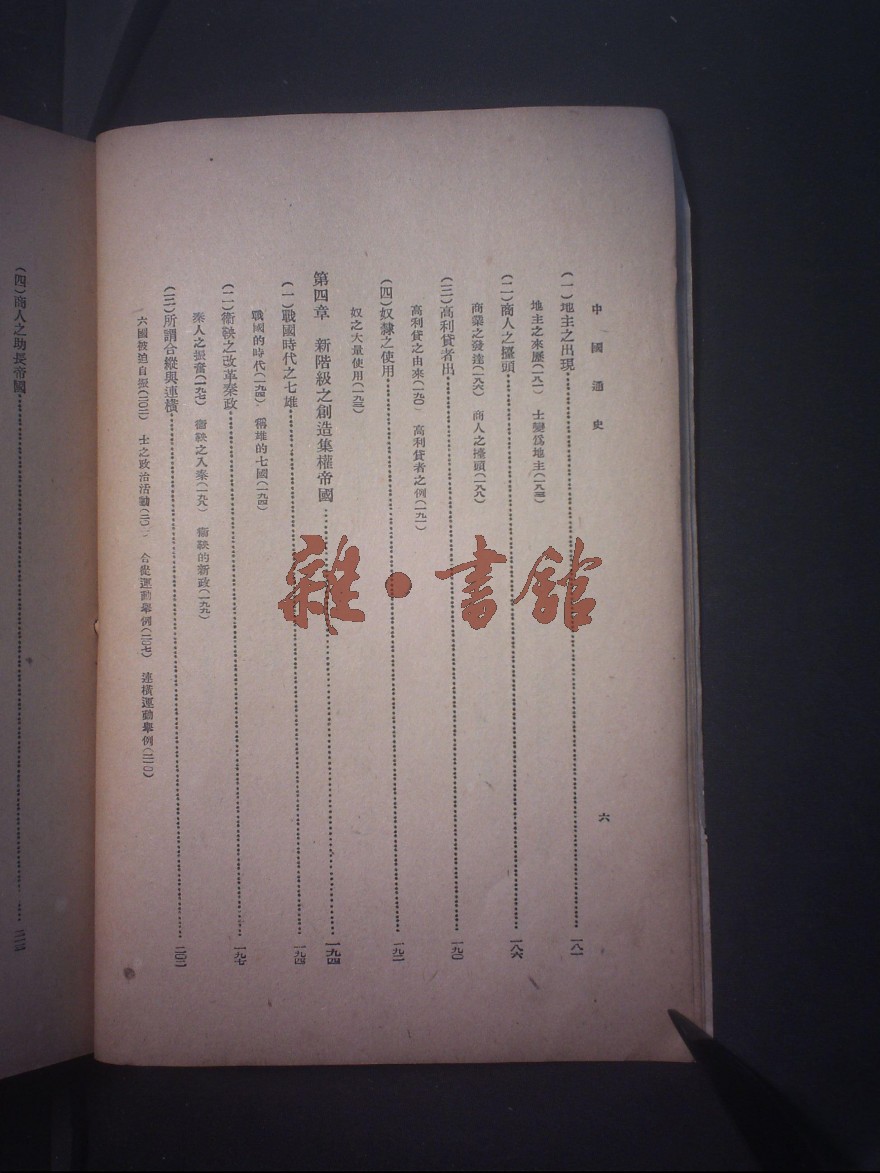 中國通史 六
(一)地主之出現……一八一
地主之來歷(一八一) 士變爲地主(一八三)
(二)商人之擡頭……一八六
商業之發達(一八六) 商人之擡頭(一八八)
(三)高利貸者出……一九〇
高利貸之由來(一九〇) 高利貸者之例(一九一)
(四)奴隸之使用……一九二
奴之大量使用(一九二)
第四章 新階級之創造集權帝國……一九四
(一)戰國時代之七雄……一九四
戰國的時代(一九四) 稱雄的七國(一九四)
(二)衞鞅之改革秦政……一九七
秦人之振奮(一九七) 衞鞅之入秦(一九八) 衞鞅的新政(一九九)
(三)所謂合縱與連橫……二〇二
六國被迫自振(二〇二) 士之政治活動 合從運動舉例(二〇七) 連橫運動舉例(二一〇)
(四)商人之助長帝國……二一三
雜·書館